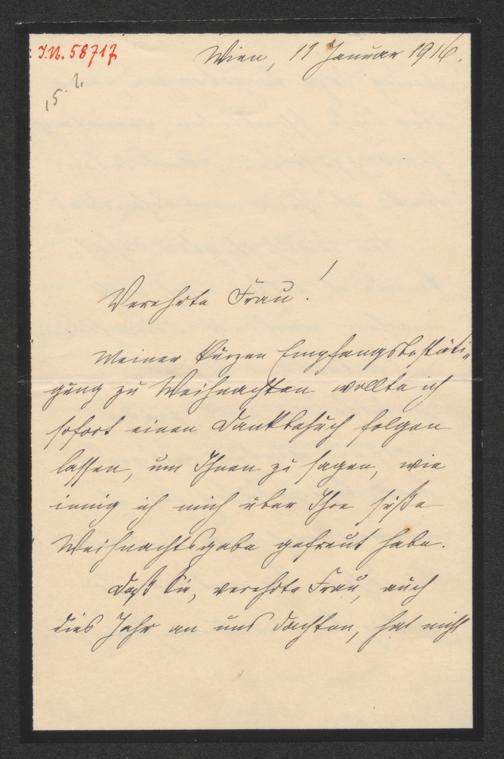 J.N. 58717
Wien, 11 Januar 1916.
Verehrte Frau!
Meiner kurzen Empfangsbestäti-
gung zu Weihnachten wollte ich
sofort einen Dankbesuch folgen
lassen, um Ihnen zu sagen, wie
innig ich mich über Ihre süße
Weihnachtsgabe gefreut habe.
Daß Sie, verehrte Frau, auch
dies Jahr an uns dachten, hat nicht